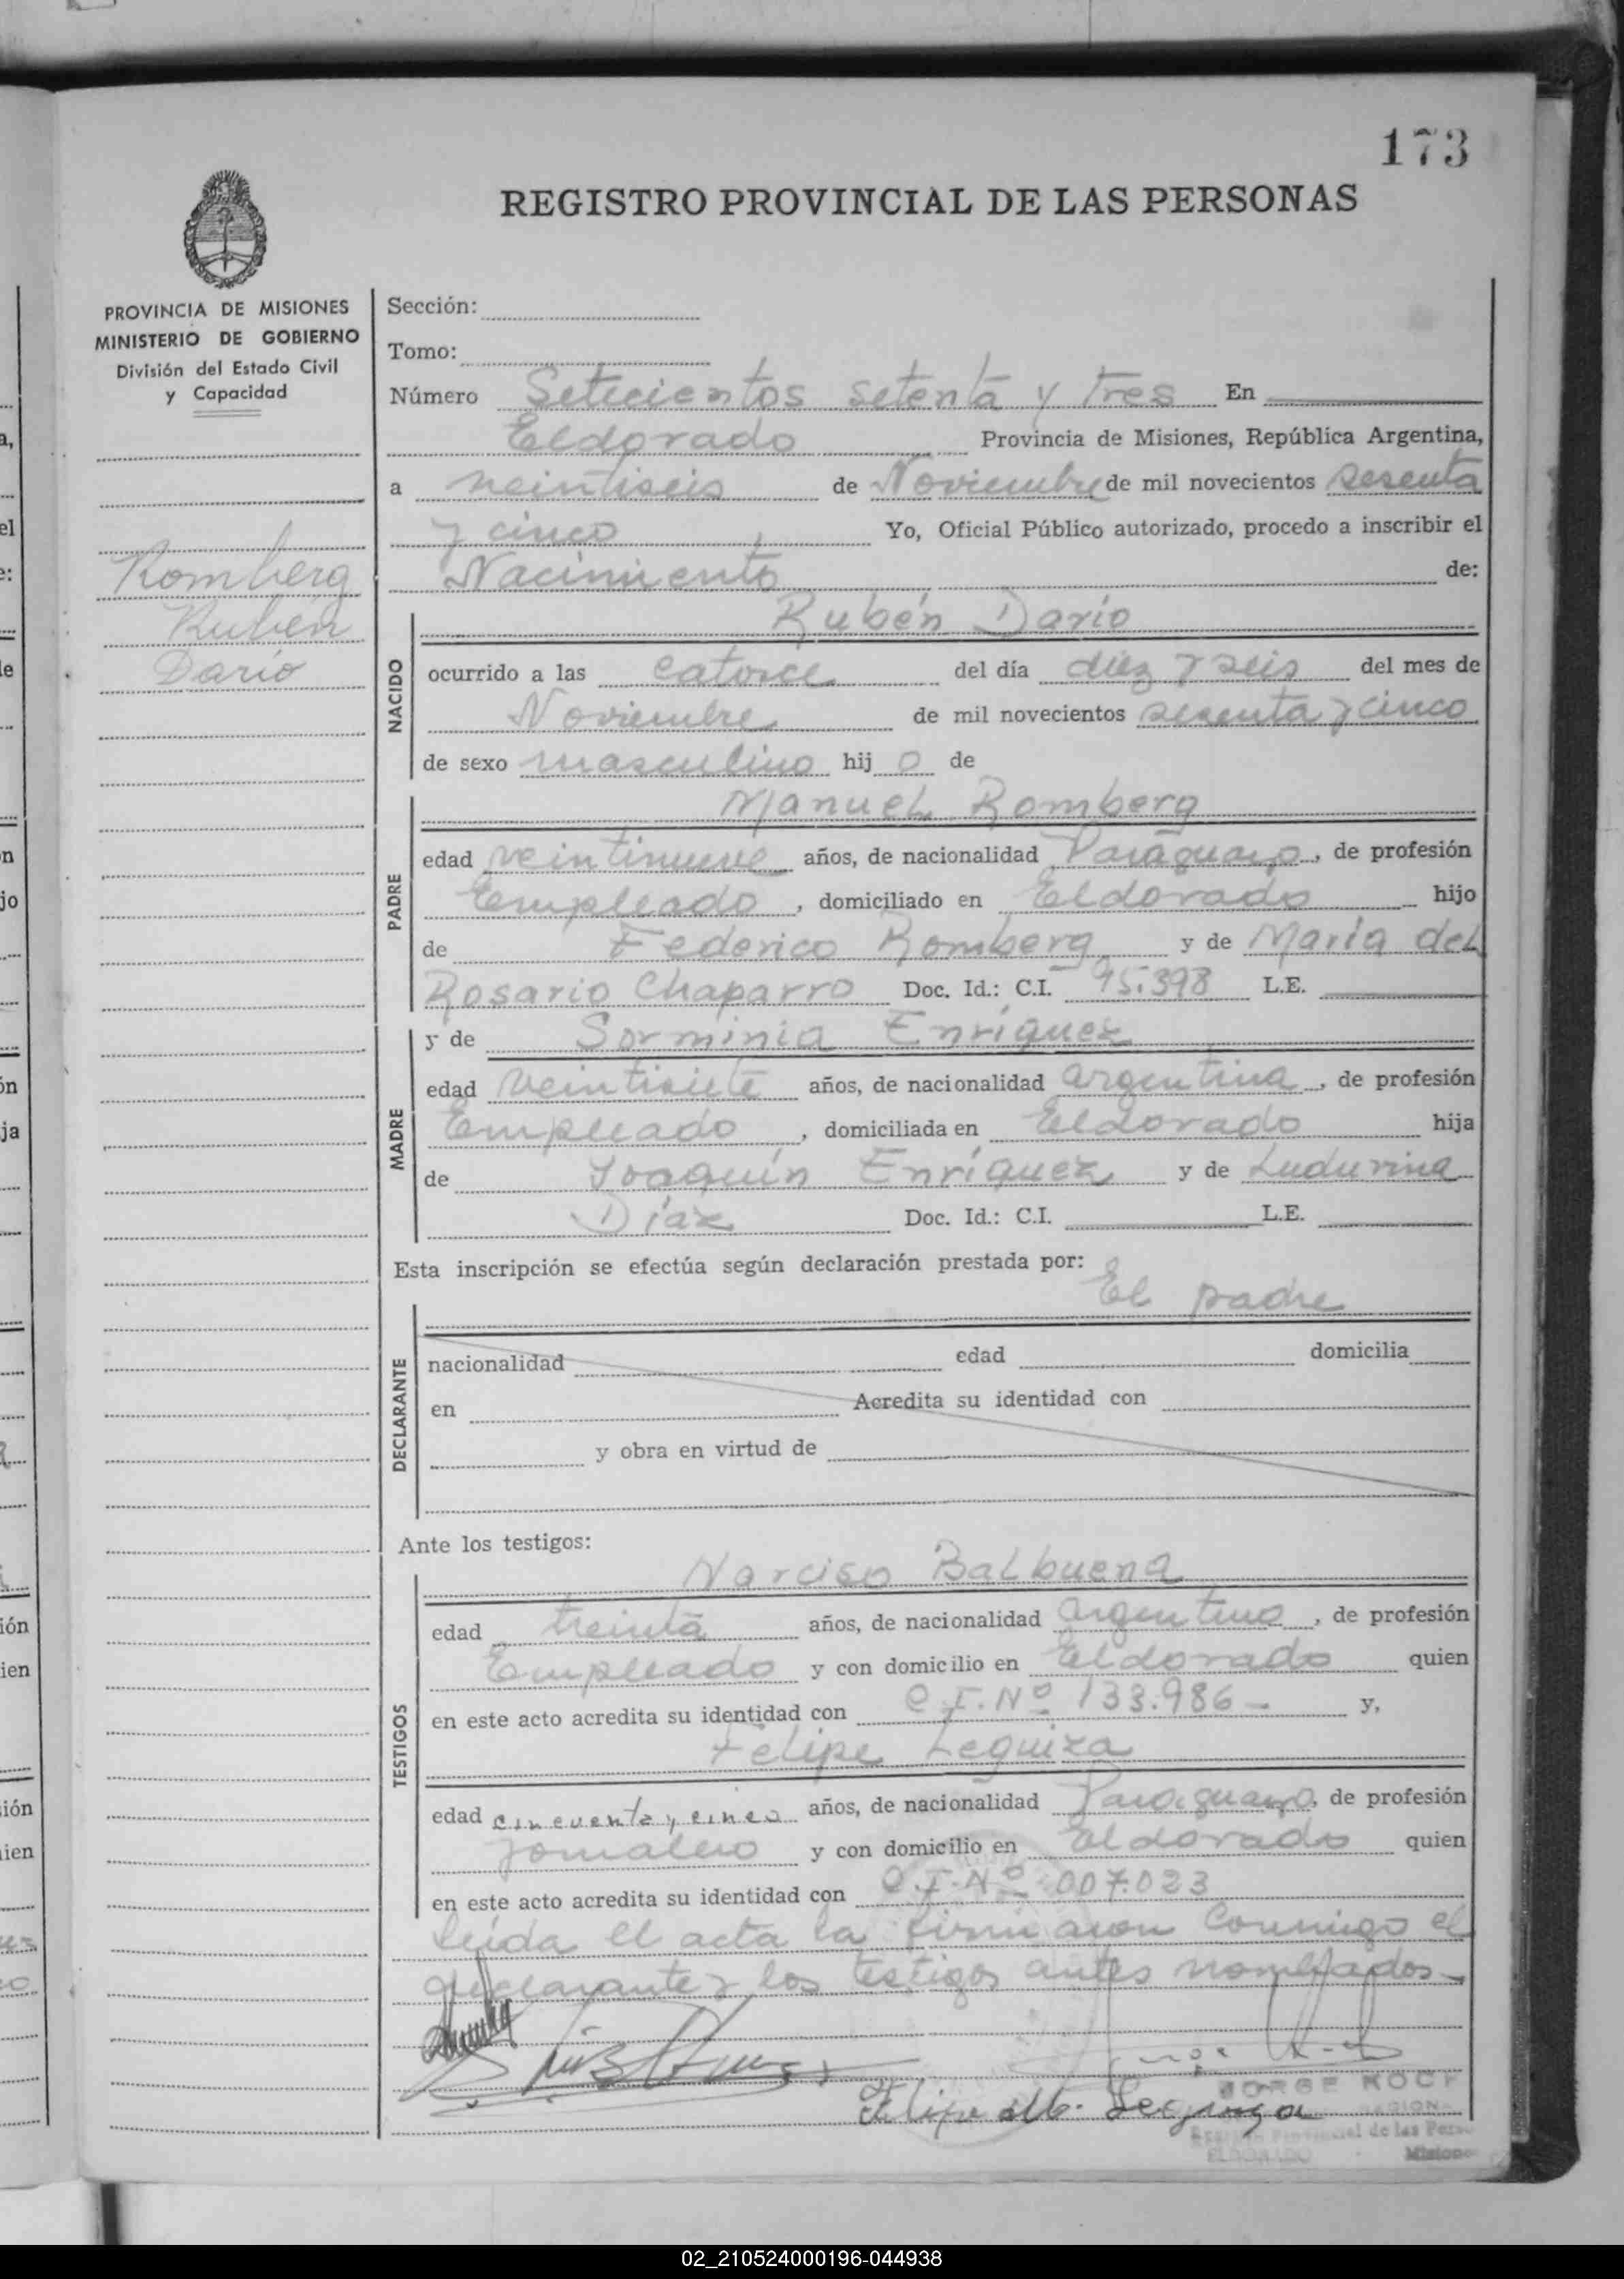 173
REGISTRO PROVINCIAL DE LAS PERSONAS
PROVINCIA DE MISIONES
MINISTERIO DE GOBIERNO
División del Estado Civil
y Capacidad
Romberg
Rubén
Darío
Sección:
Tomo:
Número Setecientos setenta y tres En
Eldorado Provincia de Misiones, República Argentina,
a veintiseis de Noviembre de mil novecientos sesenta
y cinco Yo, Oficial Público autorizado, procedo a inscribir el
Nacimiento de:
NACIDO
Rubén Darío
ocurrido a las catorce del día diez y seis del mes de
Noviembre de mil novecientos sesenta y cinco
de sexo masculino hij o de
PADRE
Manuel Romberg
edad veintinueve años, de nacionalidad Paraguayo, de profesión
Empleado, domiciliado en Eldorado hijo
de Federico Romberg y de María del
Rosario Chaparro Doc. Id.: C.I. 95.398 L.E.
MADRE
y de Sorminia Enríquez
edad veintisiete años, de nacionalidad argentina, de profesión
Empleado, domiciliada en Eldorado hija
de Joaquín Enríquez y de Ludurina
Díaz Doc. Id.: C.I. L.E.
Esta inscripción se efectúa según declaración prestada por:
El padre
DECLARANTE
nacionalidad edad domicilia
en Acredita su identidad con
y obra en virtud de
Ante los testigos:
TESTIGOS
Narciso Balbuena
edad treinta años, de nacionalidad argentina, de profesión
Empleado y con domicilio en Eldorado quien
en este acto acredita su identidad con C.I. Nº 133.986 - y,
Felipe Leguiza
edad cincuenta y cinco años, de nacionalidad Paraguayo, de profesión
jornalero y con domicilio en Eldorado quien
en este acto acredita su identidad con C.I. Nº 007.023
Leída el acta la firmaron conmigo el
declarante y los testigos antes nombrados.
Felipe Leguiza
JORGE
de las
ELDORADO Misiones
02_210524000196-044938